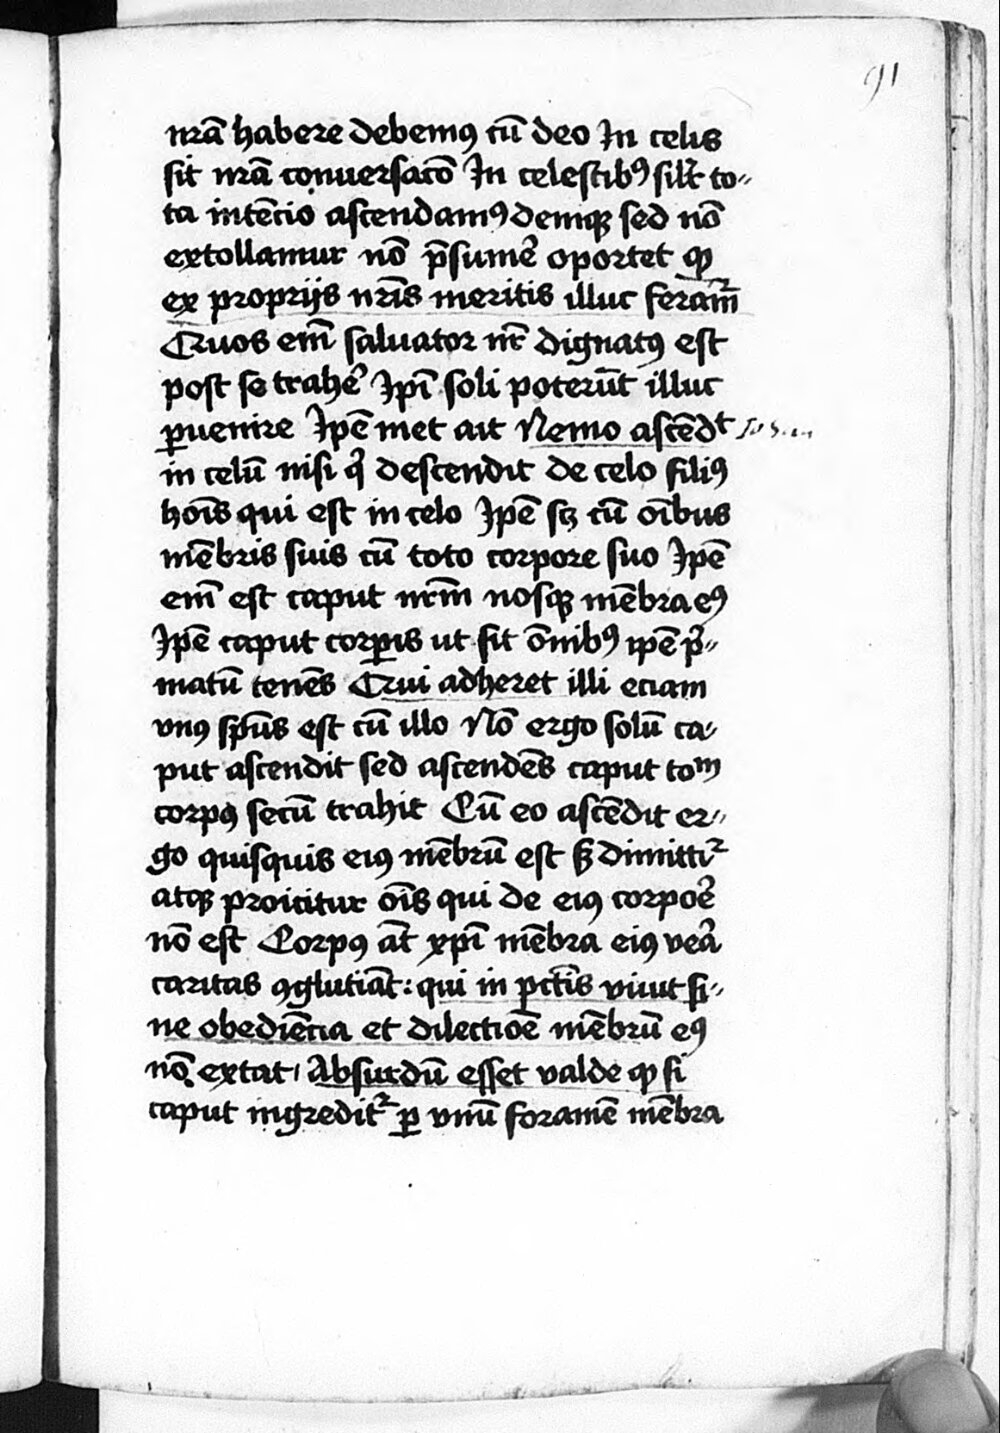 91
nrā habere debemꝰ cū deo In celis
sit nrā conuersacō In celestibꝰ silr̄ to-
ta intēcio ascendamꝰ demqꝫ sed nō
extollamur nō p̄sumer̄ oportet ꝙ
ex proprijs nrīs meritis illuc feram̄r
Quos em̄ saluator nr̄ dignatꝰ est
post se traher̄ Ipī soli poterūt illuc
ꝑuenire Ipē met ait Nemo ascēdt
in celū nisi q̄ descendit de celo filiꝰ
hoīs qui est in celo Ipē scꝫ cū oībus
mēbris suis cū toto corpore suo Ipē
em̄ est caput nrm̄ nosqꝫ mēbra eꝰ
Ipē caput corꝑis ut sit ōnibꝰ ipē pⁱ-
matū tenēs Qui adheret illi eciam
vnꝰ spūs est cū illo Nō ergo solū ca-
put ascendit sed ascendēs caput toᵐ
corpꝰ secū trahit Cū eo ascēdit er-
go quisquis eiꝰ mēbrū est sꝫ dimittiᷣ
atqꝫ proicitur oīs qui de eiꝰ corpoē
nō est Corpꝰ āt xp̄i mēbra eiꝰ veā
caritas ꝯglutiāt: qui in pctīs viuūt si-
ne obediēcia et dilectiōe mēbrū eꝰ
nō extat Absurdū esset valde ꝙ si
caput ingreditᷣ ꝑ vnū foramē mēbra